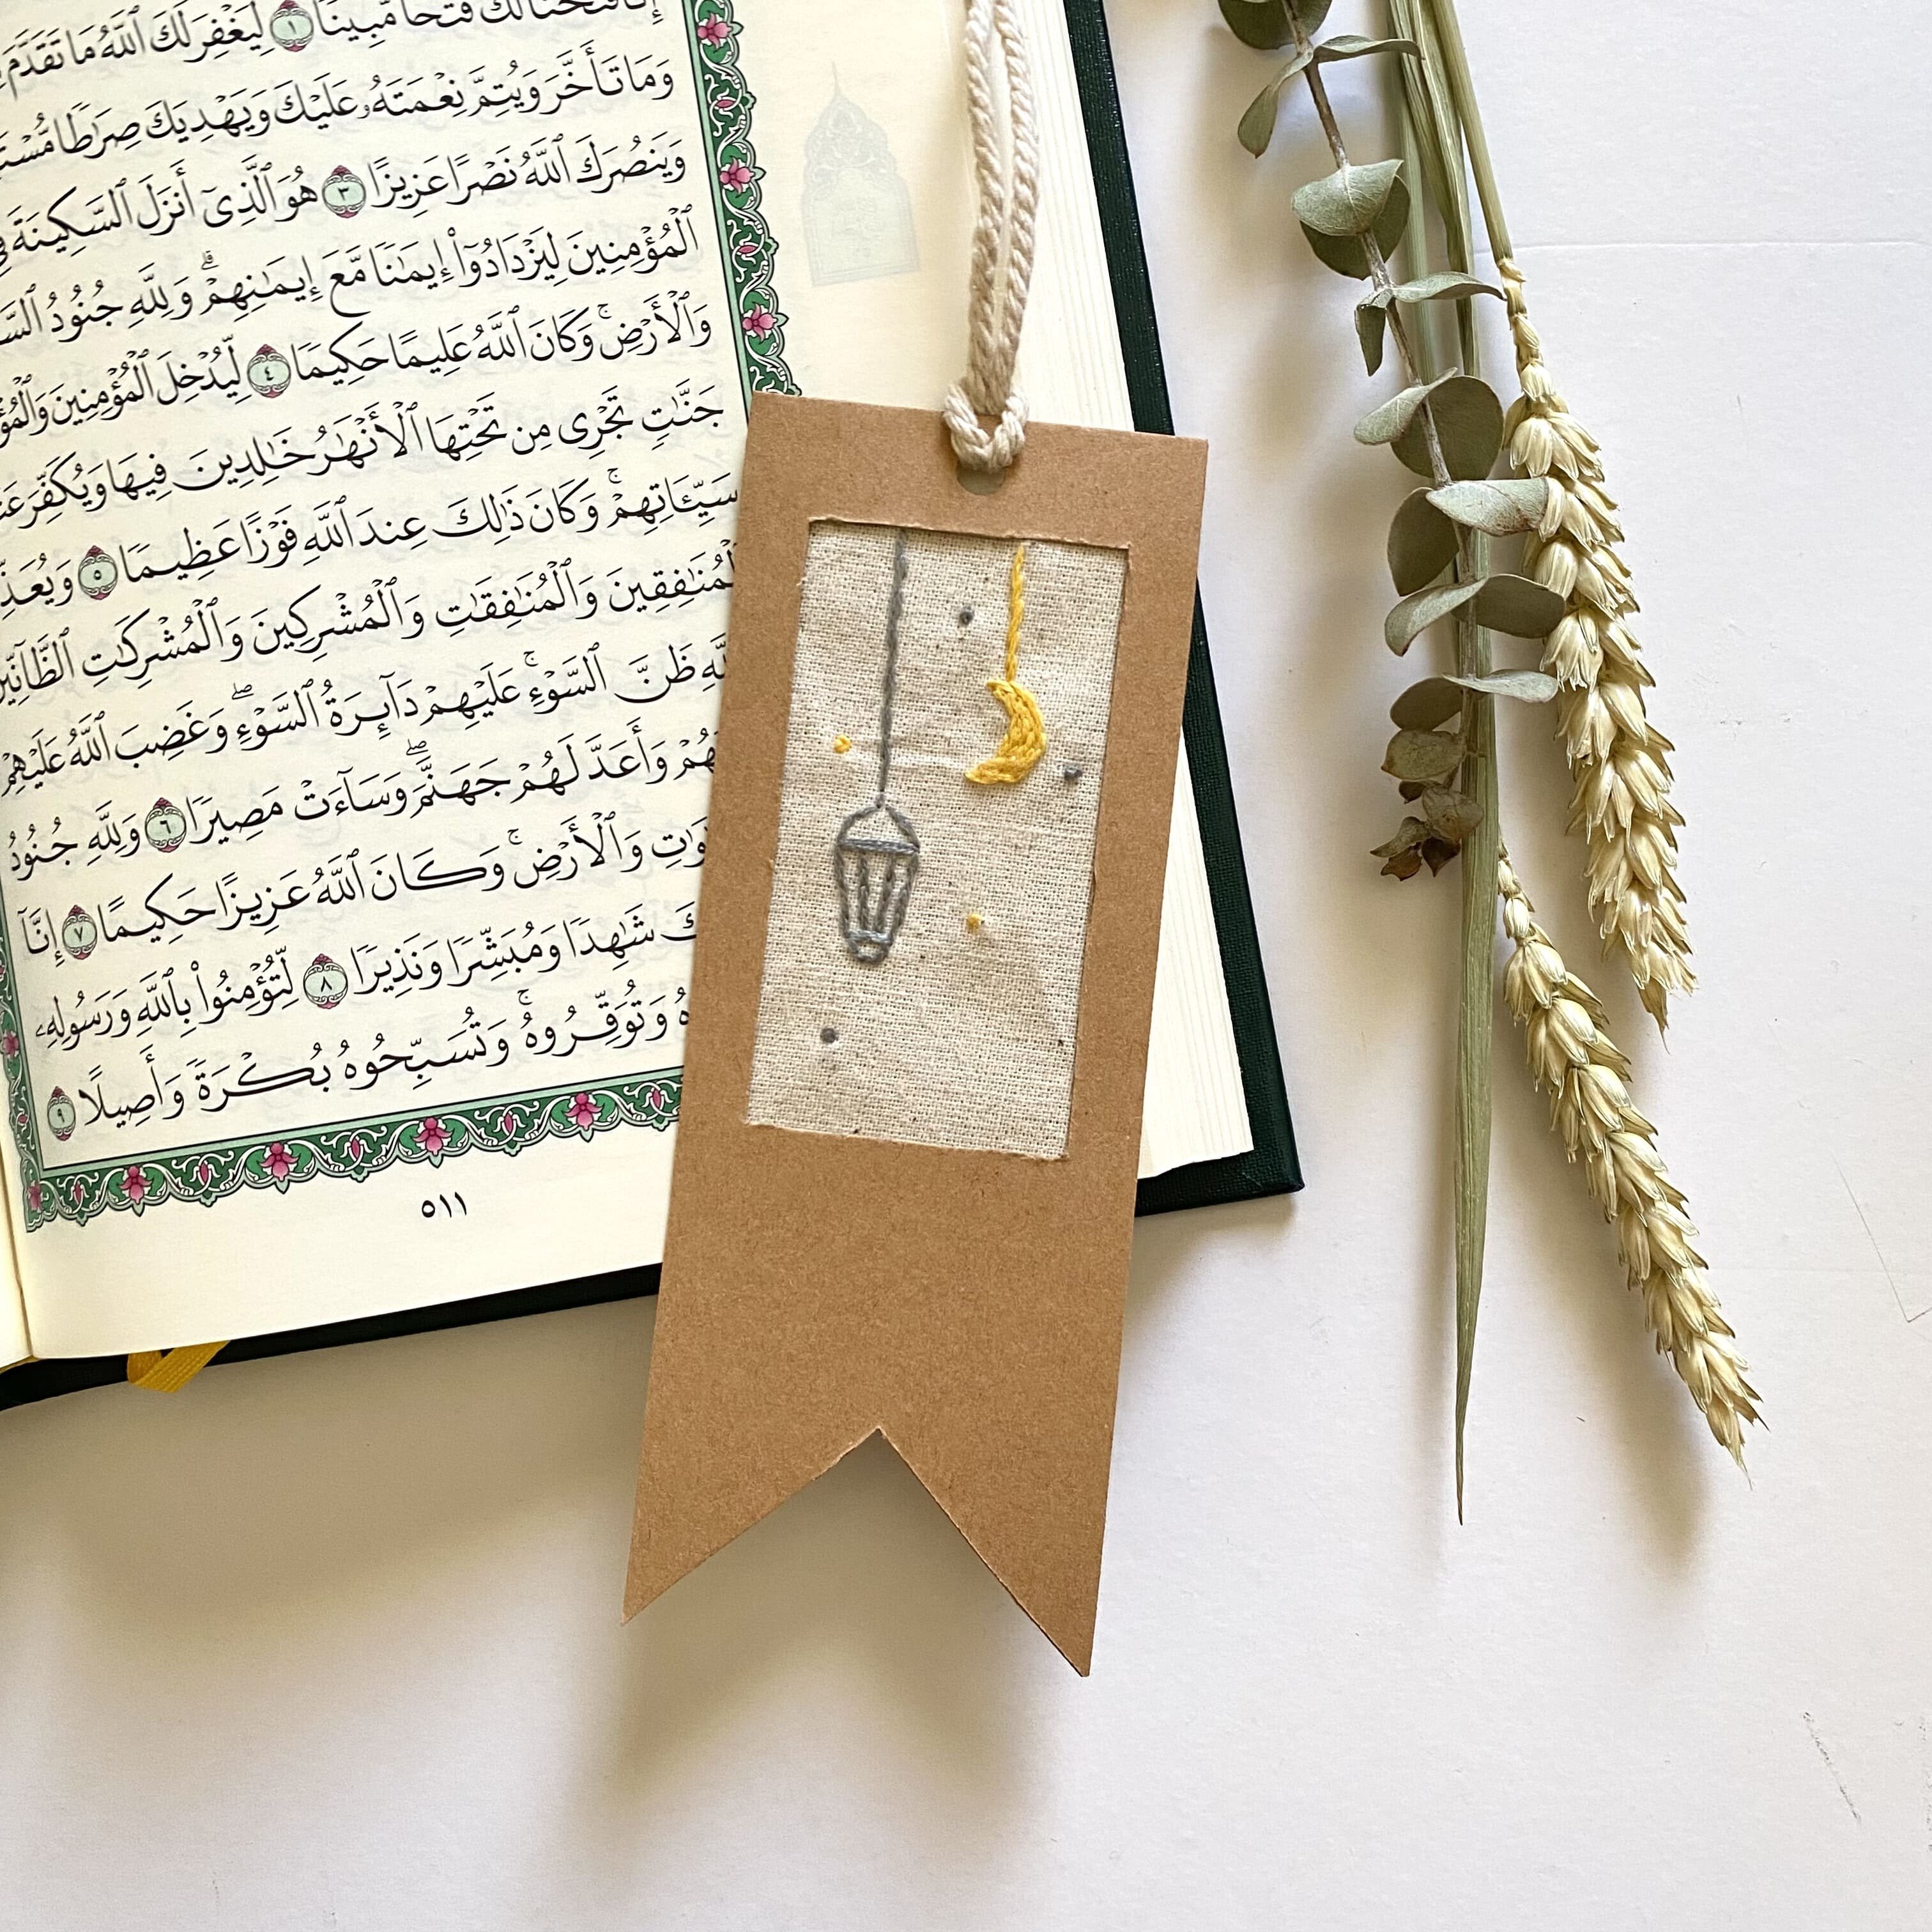 إِنَّا فَتَحْنَا لَكَ فَتْحًا مُّبِينًا ١ لِّيَغْفِرَ لَكَ ٱللَّهُ مَا تَقَدَّمَ
وَمَا تَأَخَّرَ وَيُتِمَّ نِعْمَتَهُۥ عَلَيْكَ وَيَهْدِيَكَ صِرَٰطًا
وَيَنصُرَكَ ٱللَّهُ نَصْرًا عَزِيزًا ٣ هُوَ ٱلَّذِىٓ أَنزَلَ ٱلسَّكِينَةَ
ٱلْمُؤْمِنِينَ لِيَزْدَادُوٓا۟ إِيمَٰنًا مَّعَ إِيمَٰنِهِمْ ۗ وَلِلَّهِ جُنُودُ
وَٱلْأَرْضِ ۚ وَكَانَ ٱللَّهُ عَلِيمًا حَكِيمًا ٤ لِّيُدْخِلَ ٱلْمُؤْمِنِينَ
جَنَّٰتٍ تَجْرِى مِن تَحْتِهَا ٱلْأَنْهَٰرُ خَٰلِدِينَ فِيهَا وَيُكَفِّرَ
سَيِّـَٔاتِهِمْ ۚ وَكَانَ ذَٰلِكَ عِندَ ٱللَّهِ فَوْزًا عَظِيمًا ٥
ٱلْمُنَٰفِقِينَ وَٱلْمُنَٰفِقَٰتِ وَٱلْمُشْرِكِينَ وَٱلْمُشْرِكَٰتِ ٱلظَّآنِّينَ
ظَنَّ ٱلسَّوْءِ ۚ عَلَيْهِمْ دَآئِرَةُ ٱلسَّوْءِ ۖ وَغَضِبَ ٱللَّهُ عَلَيْهِمْ
وَأَعَدَّ لَهُمْ جَهَنَّمَ ۖ وَسَآءَتْ مَصِيرًا ٦ وَلِلَّهِ جُنُودُ
وَٱلْأَرْضِ ۚ وَكَانَ ٱللَّهُ عَزِيزًا حَكِيمًا ٧ إِنَّآ
شَٰهِدًا وَمُبَشِّرًا وَنَذِيرًا ٨ لِّتُؤْمِنُوا۟ بِٱللَّهِ وَرَسُولِهِۦ
وَتُوَقِّرُوهُ ۚ وَتُسَبِّحُوهُ بُكْرَةً وَأَصِيلًا ٩
٥١١